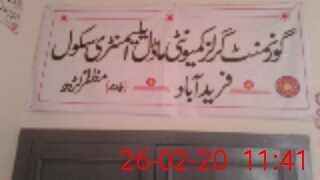 گورنمنٹ گرلز کمیونٹی ماڈل ایلیمنٹری سکول
فرید آباد مظفر گڑھ
26-02-20 11:41